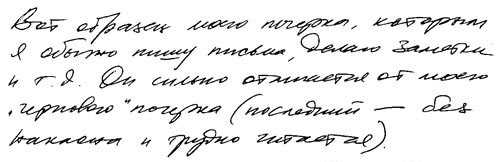 Вот образец моего почерка, которым
я обычно пишу письма, делаю заметки
и т.д. Он сильно отличается от моего
„чернового" почерка (последний — без
наклона и трудно читается).